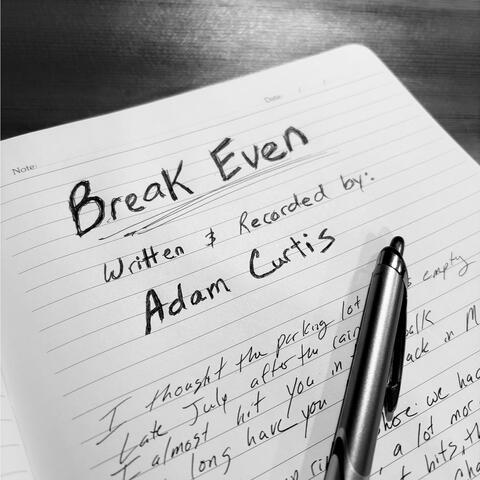 Date: / /
Note:
Break Even
Written & Recorded by:
Adam Curtis
I thought the parking lot empty
Late July after the rain
I almost hit you in the
long have you back in M
we had
a lot more